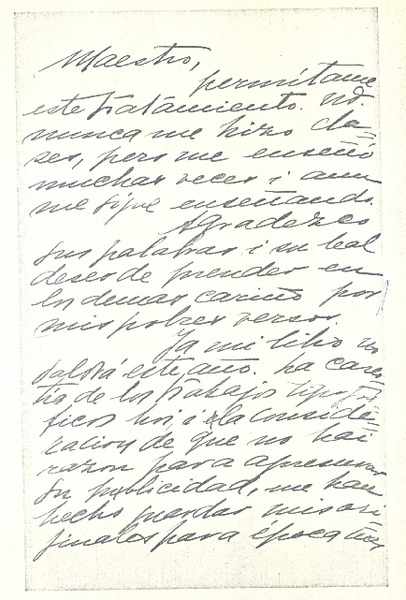 Maestro,
permítame
este tratamiento. Ud.
nunca me hizo cla-
ses, pero me enseñó
muchas veces i aun
me sigue enseñando.
Agradezco
sus palabras i su leal
deseo de prender en
los demas cariño por
mis pobres versos.
Ya mi libro no
saldrá este año. La cares-
tía de los trabajos tipográ-
ficos hoi, i la conside-
racion de que no hai
razon para apresurar
su publicidad, me han
hecho guardar mis ori-
jinales para época mas